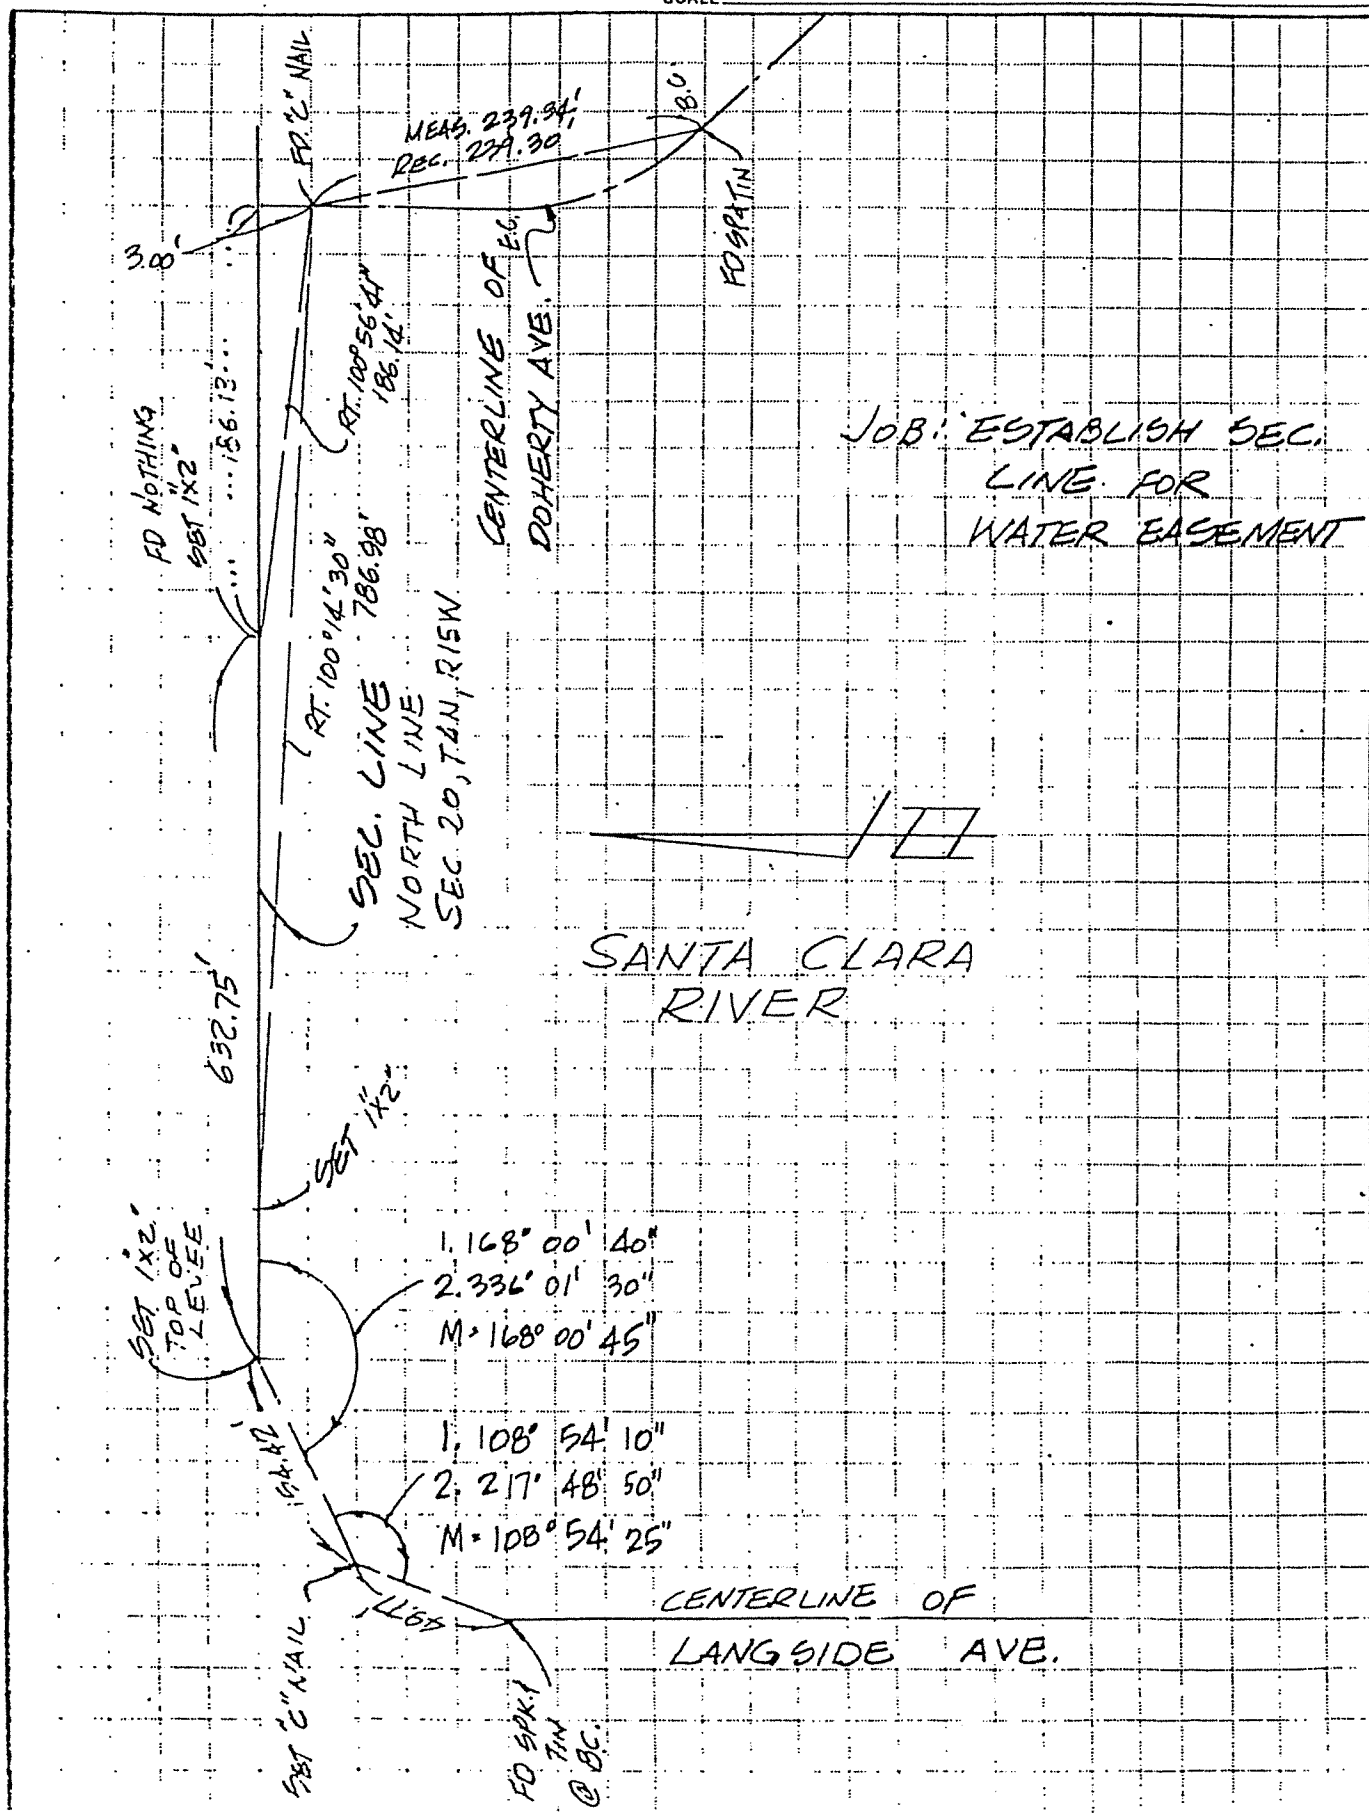 SCALE
FD. "C" NAIL
MEAS. 239.34'
REC. 239.30'
B.C.
3.00'
E.C.
FD SP & TIN
RT. 100° 56' 41"
186.14'
CENTERLINE OF
DOHERTY AVE.
186.13'
FD NOTHING
SET 1"X2"
JOB: ESTABLISH SEC.
LINE FOR
WATER EASEMENT
RT. 100° 14' 30"
786.98'
SEC. LINE
NORTH LINE
SEC 20, T4N, R15W
SANTA CLARA
RIVER
632.75'
SET 1"X2"
SET 1"X2"
TOP OF
LEVEE
1. 168° 00' 40"
2. 336° 01' 30"
M= 168° 00' 45"
154.42'
1. 108° 54' 10"
2. 217° 48' 50"
M= 108° 54' 25"
49.77'
SET "C" NAIL
CENTERLINE OF
LANGSIDE AVE.
FD SPK. &
TIN
@ BC.